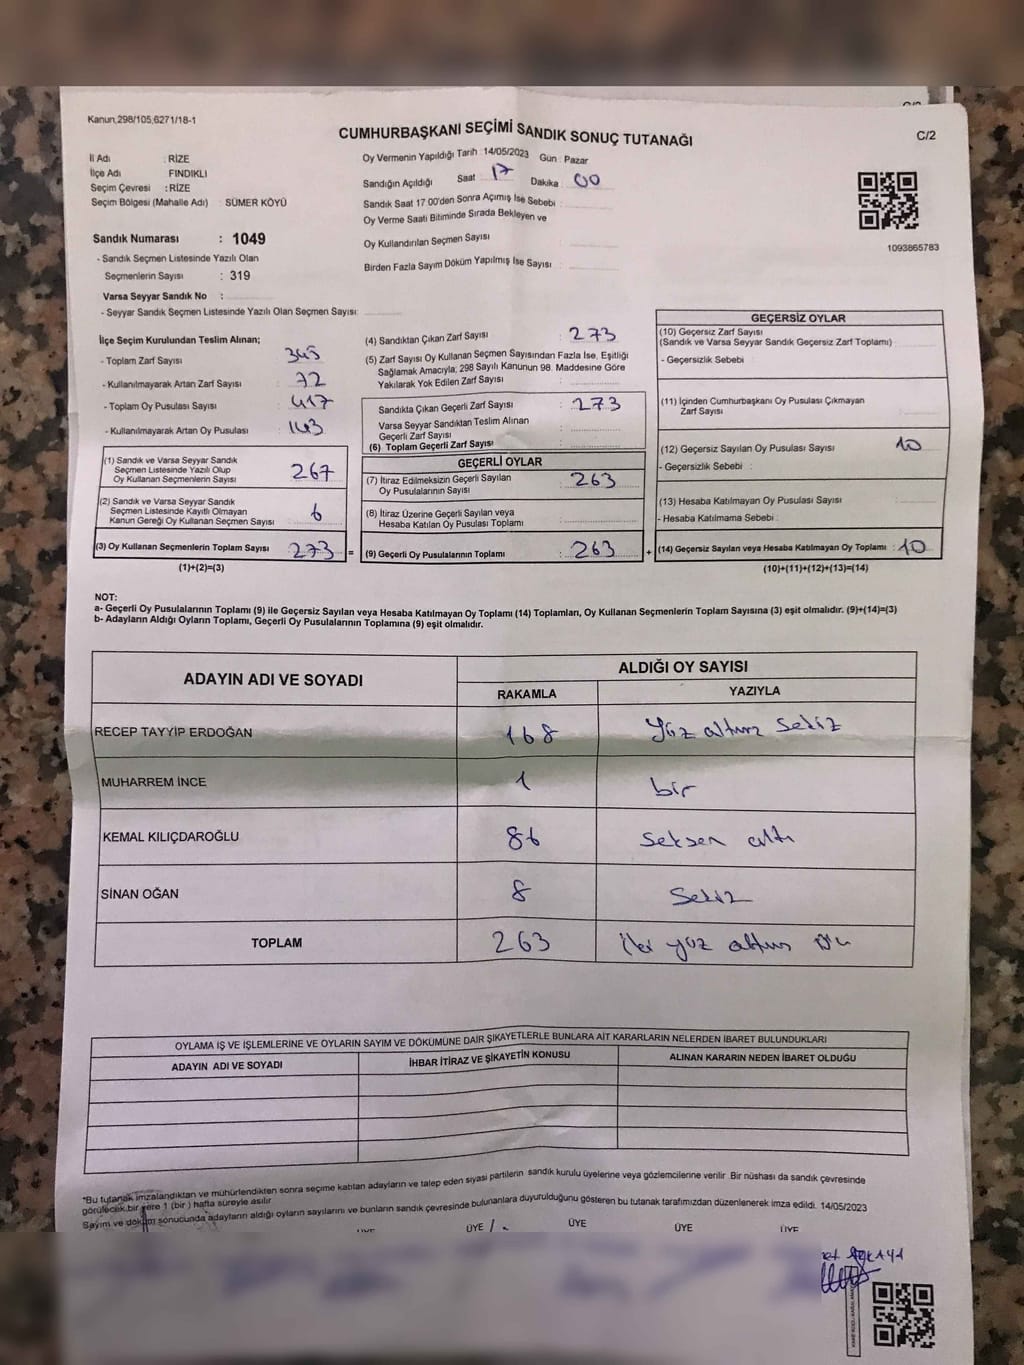 Kanun,298/105,6271/18-1
CUMHURBAŞKANI SEÇİMİ SANDIK SONUÇ TUTANAĞI
C/2
İl Adı : RİZE
İlçe Adı FINDIKLI
Seçim Çevresi : RİZE
Seçim Bölgesi (Mahalle Adı) : SÜMER KÖYÜ
Oy Vermenin Yapıldığı Tarih : 14/05/2023 Gün : Pazar
Sandığın Açıldığı Saat 17 Dakika 00
Sandık Saat 17.00'den Sonra Açımış İse Sebebi :
Oy Verme Saati Bitiminde Sırada Bekleyen ve
Oy Kullandırılan Seçmen Sayısı
Birden Fazla Sayım Döküm Yapılmış İse Sayısı
1093865783
Sandık Numarası : 1049
- Sandık Seçmen Listesinde Yazılı Olan
Seçmenlerin Sayısı : 319
Varsa Seyyar Sandık No :
- Seyyar Sandık Seçmen Listesinde Yazılı Olan Seçmen Sayısı:
İlçe Seçim Kurulundan Teslim Alınan;
- Toplam Zarf Sayısı : 345
- Kullanılmayarak Artan Zarf Sayısı : 72
- Toplam Oy Pusulası Sayısı : 417
- Kullanılmayarak Artan Oy Pusulası : 143
(1) Sandık ve Varsa Seyyar Sandık
Seçmen Listesinde Yazılı Olup
Oy Kullanan Seçmenlerin Sayısı 267
(2) Sandık ve Varsa Seyyar Sandık
Seçmen Listesinde Kayıtlı Olmayan
Kanun Gereği Oy Kullanan Seçmen Sayısı 6
(3) Oy Kullanan Seçmenlerin Toplam Sayısı 273 =
(1)+(2)=(3)
(4) Sandıktan Çıkan Zarf Sayısı : 273
(5) Zarf Sayısı Oy Kullanan Seçmen Sayısından Fazla İse, Eşitliği
Sağlamak Amacıyla; 298 Sayılı Kanunun 98. Maddesine Göre
Yakılarak Yok Edilen Zarf Sayısı
Sandıkta Çıkan Geçerli Zarf Sayısı : 273
Varsa Seyyar Sandıktan Teslim Alınan
Geçerli Zarf Sayısı
(6) Toplam Geçerli Zarf Sayısı
GEÇERLİ OYLAR
(7) İtiraz Edilmeksizin Geçerli Sayılan
Oy Pusulalarının Sayısı : 263
(8) İtiraz Üzerine Geçerli Sayılan veya
Hesaba Katılan Oy Pusulası Toplamı
(9) Geçerli Oy Pusulalarının Toplamı : 263 +
GEÇERSİZ OYLAR
(10) Geçersiz Zarf Sayısı
(Sandık ve Varsa Seyyar Sandık Geçersiz Zarf Toplamı)
- Geçersizlik Sebebi :
(11) İçinden Cumhurbaşkanı Oy Pusulası Çıkmayan
Zarf Sayısı
(12) Geçersiz Sayılan Oy Pusulası Sayısı : 10
- Geçersizlik Sebebi :
(13) Hesaba Katılmayan Oy Pusulası Sayısı
- Hesaba Katılmama Sebebi :
(14) Geçersiz Sayılan veya Hesaba Katılmayan Oy Toplamı : 10
(10)+(11)+(12)+(13)=(14)
NOT:
a- Geçerli Oy Pusulalarının Toplamı (9) ile Geçersiz Sayılan veya Hesaba Katılmayan Oy Toplamı (14) Toplamları, Oy Kullanan Seçmenlerin Toplam Sayısına (3) eşit olmalıdır. (9)+(14)=(3)
b- Adayların Aldığı Oyların Toplamı, Geçerli Oy Pusulalarının Toplamına (9) eşit olmalıdır.
ADAYIN ADI VE SOYADI
ALDIĞI OY SAYISI
RAKAMLA YAZIYLA
RECEP TAYYİP ERDOĞAN 168 Yüz altmış Sekiz
MUHARREM İNCE 1 bir
KEMAL KILIÇDAROĞLU 86 Seksen altı
SİNAN OĞAN 8 Sekiz
TOPLAM 263 İki yüz altmış üç
OYLAMA İŞ VE İŞLEMLERİNE VE OYLARIN SAYIM VE DÖKÜMÜNE DAİR ŞİKAYETLERLE BUNLARA AİT KARARLARIN NELERDEN İBARET BULUNDUKLARI
ADAYIN ADI VE SOYADI İHBAR İTİRAZ VE ŞİKAYETİN KONUSU ALINAN KARARIN NEDEN İBARET OLDUĞU
*Bu tutanak imzalandıktan ve mühürlendikten sonra seçime katılan adayların ve talep eden siyasi partilerin sandık kurulu üyelerine veya gözlemcilerine verilir. Bir nüshası da sandık çevresinde
görülecek bir yere 1 (bir) hafta süreyle asılır.
Sayım ve döküm sonucunda adayların aldığı oyların sayılarını ve bunların sandık çevresinde bulunanlara duyurulduğunu gösteren bu tutanak tarafımızdan düzenlenerek imza edildi. 14/05/2023
ÜYE ÜYE ÜYE ÜYE ÜYE